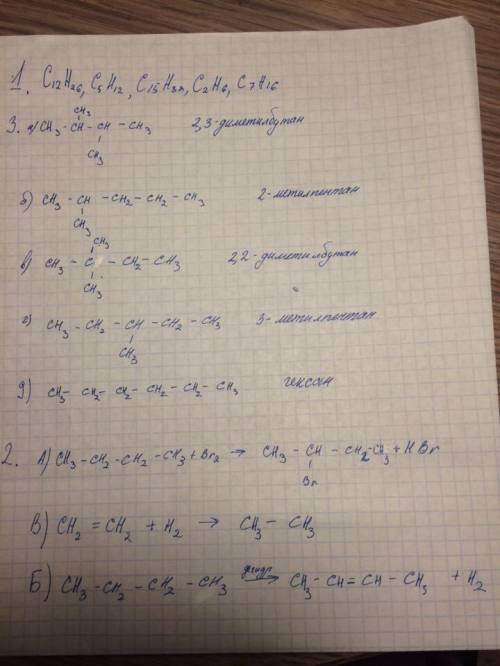 1. C12H26, C5H12, C15H32, C2H6, C7H16
CH3
3. а) CH3 - CH - CH - CH3 2,3-диметилбутан
CH3
б) CH3 - CH - CH2 - CH2 - CH3 2-метилпентан
CH3
CH3
в) CH3 - C - CH2 - CH3 2,2-диметилбутан
CH3
г) CH3 - CH2 - CH - CH2 - CH3 3-метилпентан
CH3
д) CH3 - CH2 - CH2 - CH2 - CH2 - CH3 гексан
2. А) CH3 - CH2 - CH2 - CH3 + Br2 → CH3 - CH - CH2 - CH3 + HBr
Br
В) CH2 = CH2 + H2 → CH3 - CH3
Б) CH3 - CH2 - CH2 - CH3 дегидр→ CH3 - CH = CH - CH3 + H2